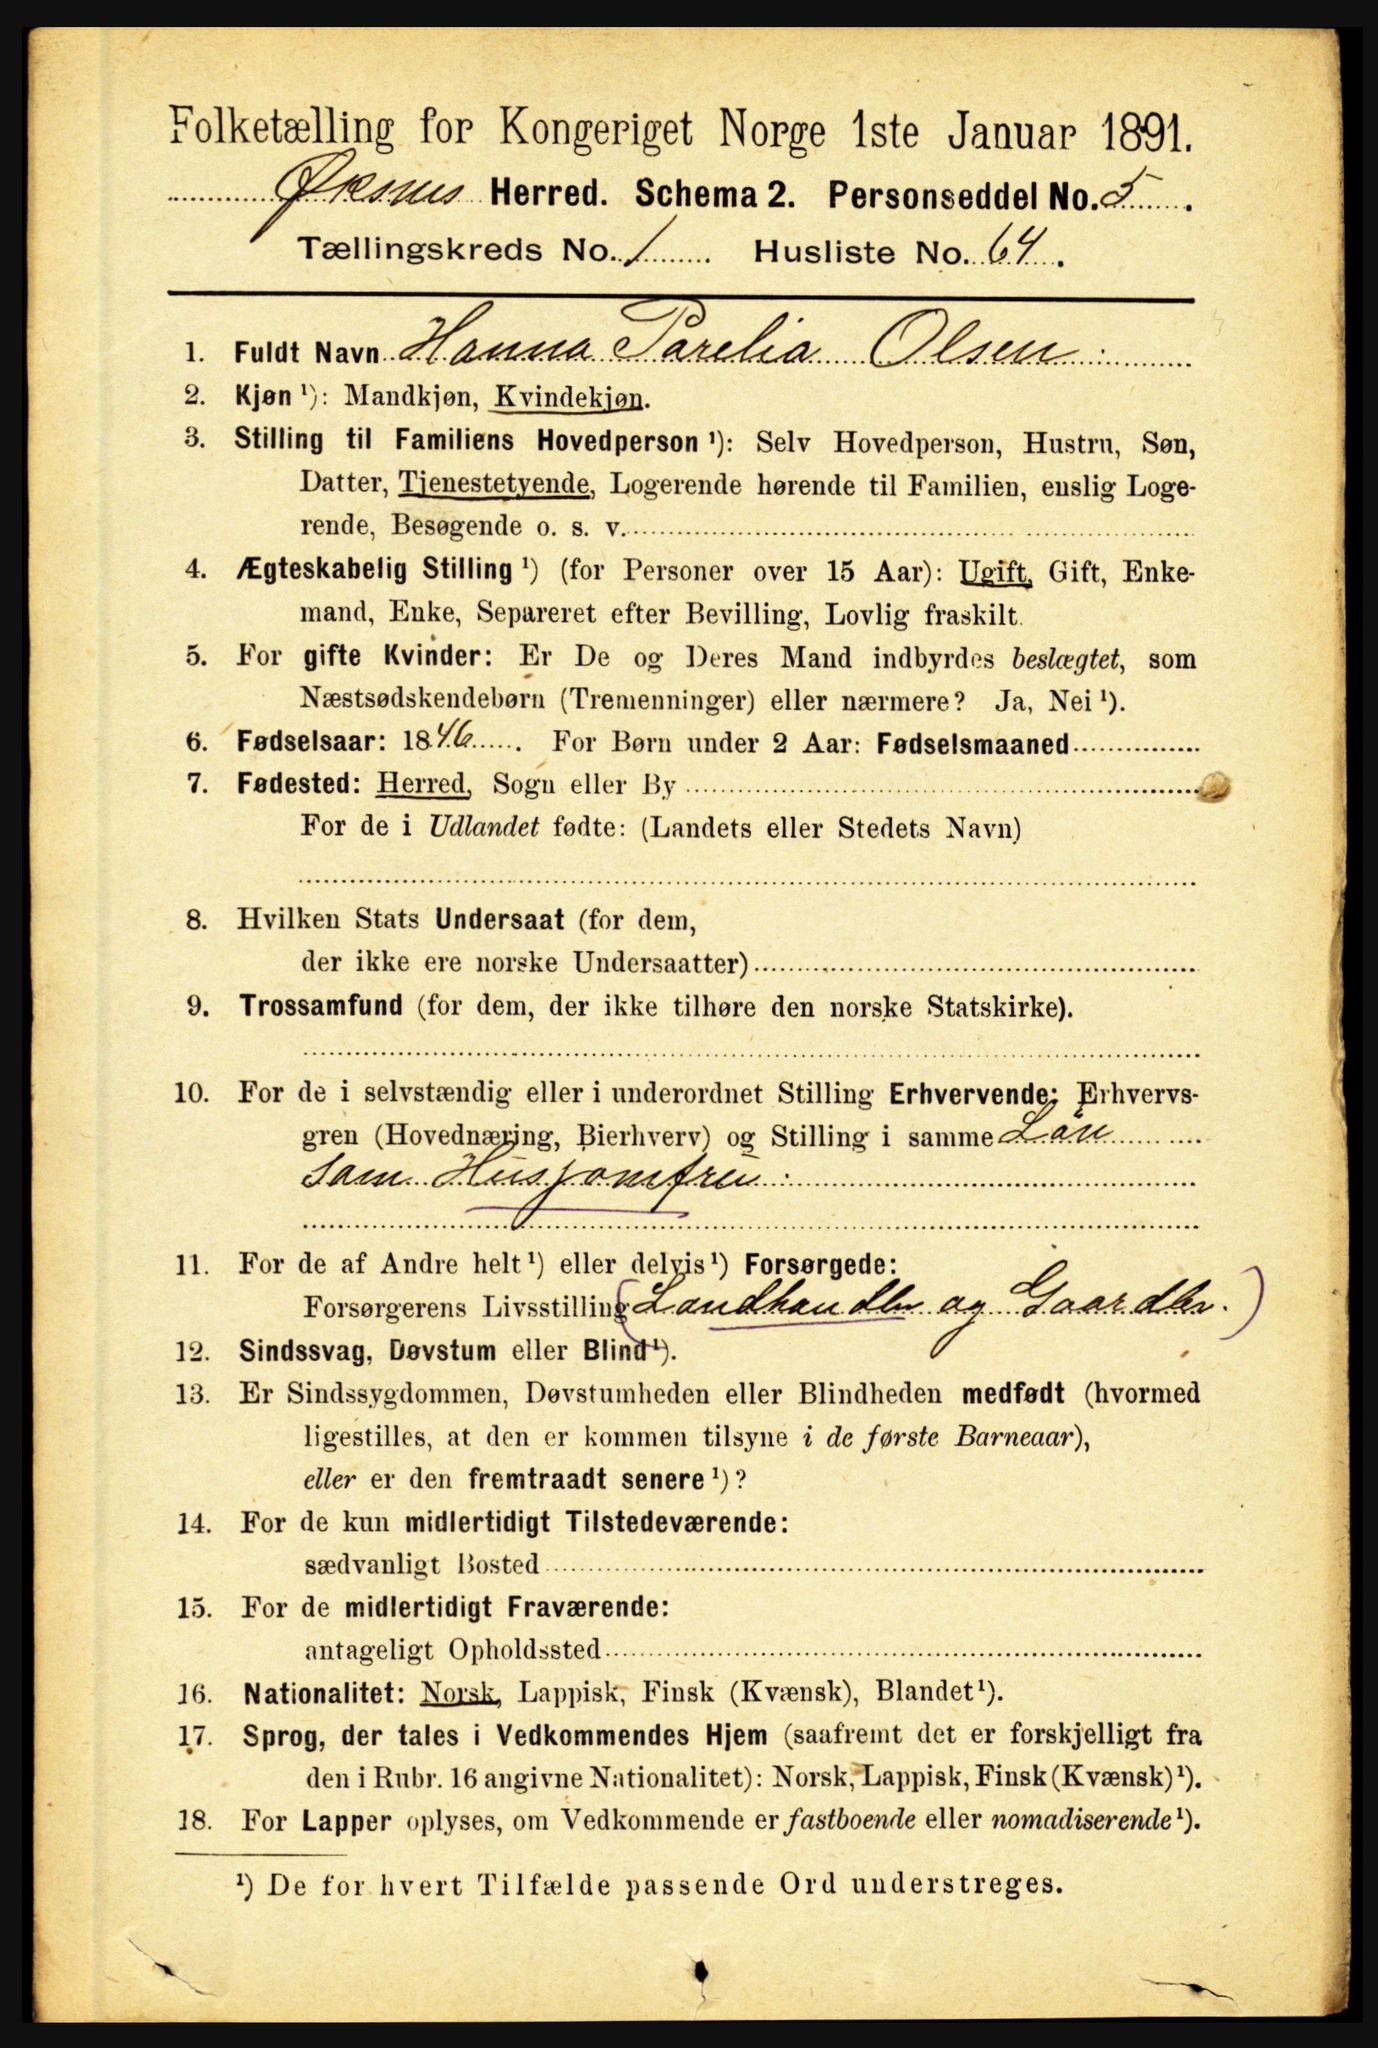 Folketælling for Kongeriget Norge 1ste Januar 1891.
Øksnes Herred. Schema 2. Personseddel No. 5.
Tællingskreds No. 1 Husliste No. 64.
1. Fuldt Navn Hanna Parelia Olsen
2. Kjøn ¹): Mandkjøn, Kvindekjøn.
3. Stilling til Familiens Hovedperson ¹): Selv Hovedperson, Hustru, Søn,
Datter, Tjenestetyende, Logerende hørende til Familien, enslig Loge-
rende, Besøgende o. s. v.
4. Ægteskabelig Stilling ¹) (for Personer over 15 Aar): Ugift, Gift, Enke-
mand, Enke, Separeret efter Bevilling, Lovlig fraskilt.
5. For gifte Kvinder: Er De og Deres Mand indbyrdes beslægtet, som
Næstsødskendebørn (Tremenninger) eller nærmere? Ja, Nei ¹).
6. Fødselsaar: 1846. For Børn under 2 Aar: Fødselsmaaned
7. Fødested: Herred, Sogn eller By
For de i Udlandet fødte: (Landets eller Stedets Navn)
8. Hvilken Stats Undersaat (for dem,
der ikke ere norske Undersaatter)
9. Trossamfund (for dem, der ikke tilhøre den norske Statskirke).
10. For de i selvstændig eller i underordnet Stilling Erhvervende: Erhvervs-
gren (Hovednæring, Bierhverv) og Stilling i samme Løn
som Husjomfru
11. For de af Andre helt ¹) eller delvis ¹) Forsørgede:
Forsørgerens Livsstilling (Landhandler og Gaardbr.)
12. Sindssvag, Døvstum eller Blind ¹).
13. Er Sindssygdommen, Døvstumheden eller Blindheden medfødt (hvormed
ligestilles, at den er kommen tilsyne i de første Barneaar),
eller er den fremtraadt senere ¹)?
14. For de kun midlertidigt Tilstedeværende:
sædvanligt Bosted
15. For de midlertidigt Fraværende:
antageligt Opholdssted
16. Nationalitet: Norsk, Lappisk, Finsk (Kvænsk), Blandet ¹).
17. Sprog, der tales i Vedkommendes Hjem (saafremt det er forskjelligt fra
den i Rubr. 16 angivne Nationalitet): Norsk, Lappisk, Finsk (Kvænsk) ¹).
18. For Lapper oplyses, om Vedkommende er fastboende eller nomadiserende ¹).
¹) De for hvert Tilfælde passende Ord understreges.